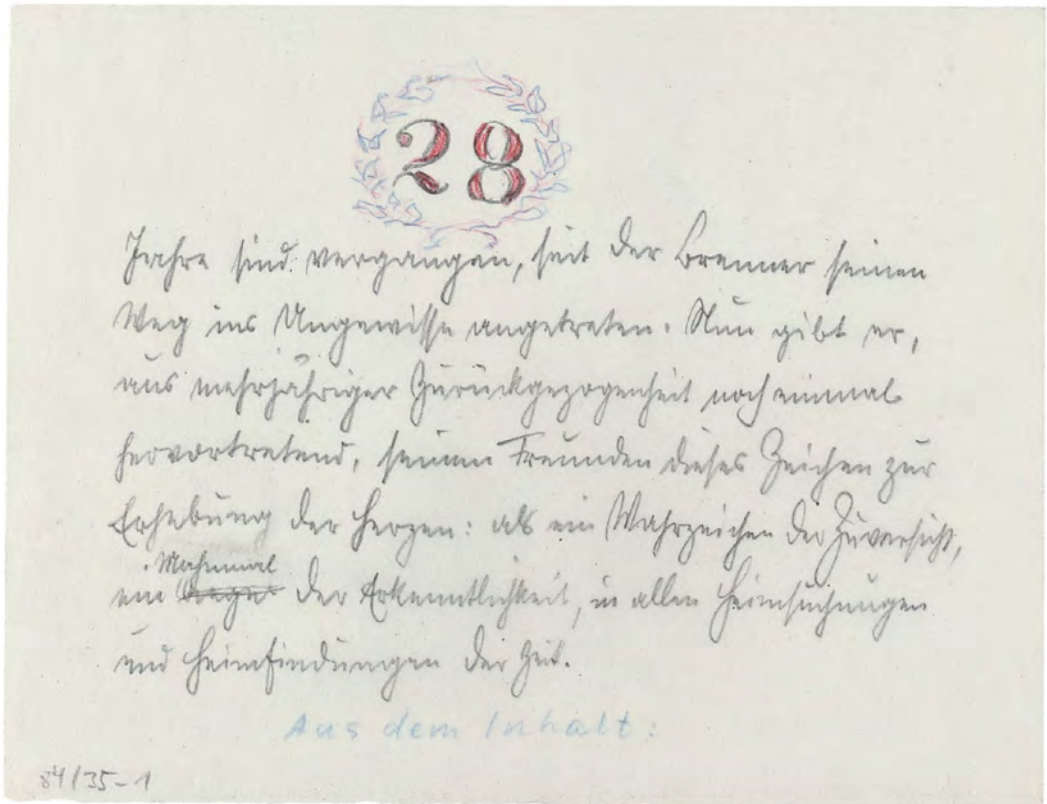 28
Jahre sind vergangen, seit der Brenner seinen
Weg ins Ungewisse angetreten. Nun gibt er,
aus mehrjähriger Zurückgezogenheit noch einmal
hervortretend, seinen Freunden dieses Zeichen zur
Erhebung der Herzen: als ein Wahrzeichen der Zuversicht,
Mahnmal
ein der Erkenntlichkeit, in allen Heimsuchungen
und Heimfindungen der Zeit.
Aus dem Inhalt:
84/35-1